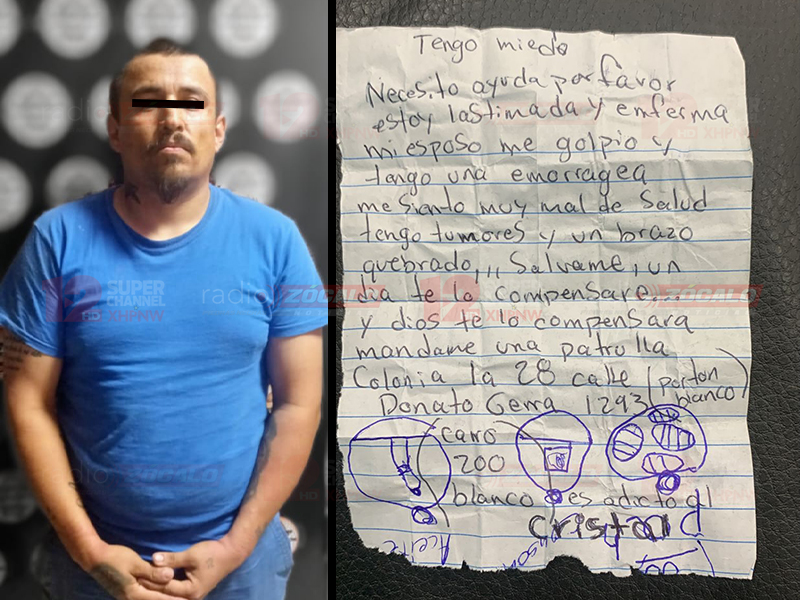 Tengo miedo
Necesito ayuda por favor
estoy lastimada y enferma
mi esposo me golpio y
tengo una emorragea
me siento muy mal de Salud
tengo tumores y un brazo
quebrado,,, Salvame, un
dia te lo compensare...
y dios te lo compensara
mandame una patrulla
Colonia la 28 calle (porton
blanco)
Donato Gerra 1293
carro
200
blanco es adicto al
cristal
Aceite
radio ZÓCALO
12 HD SUPER
CHANNEL
XHPNW